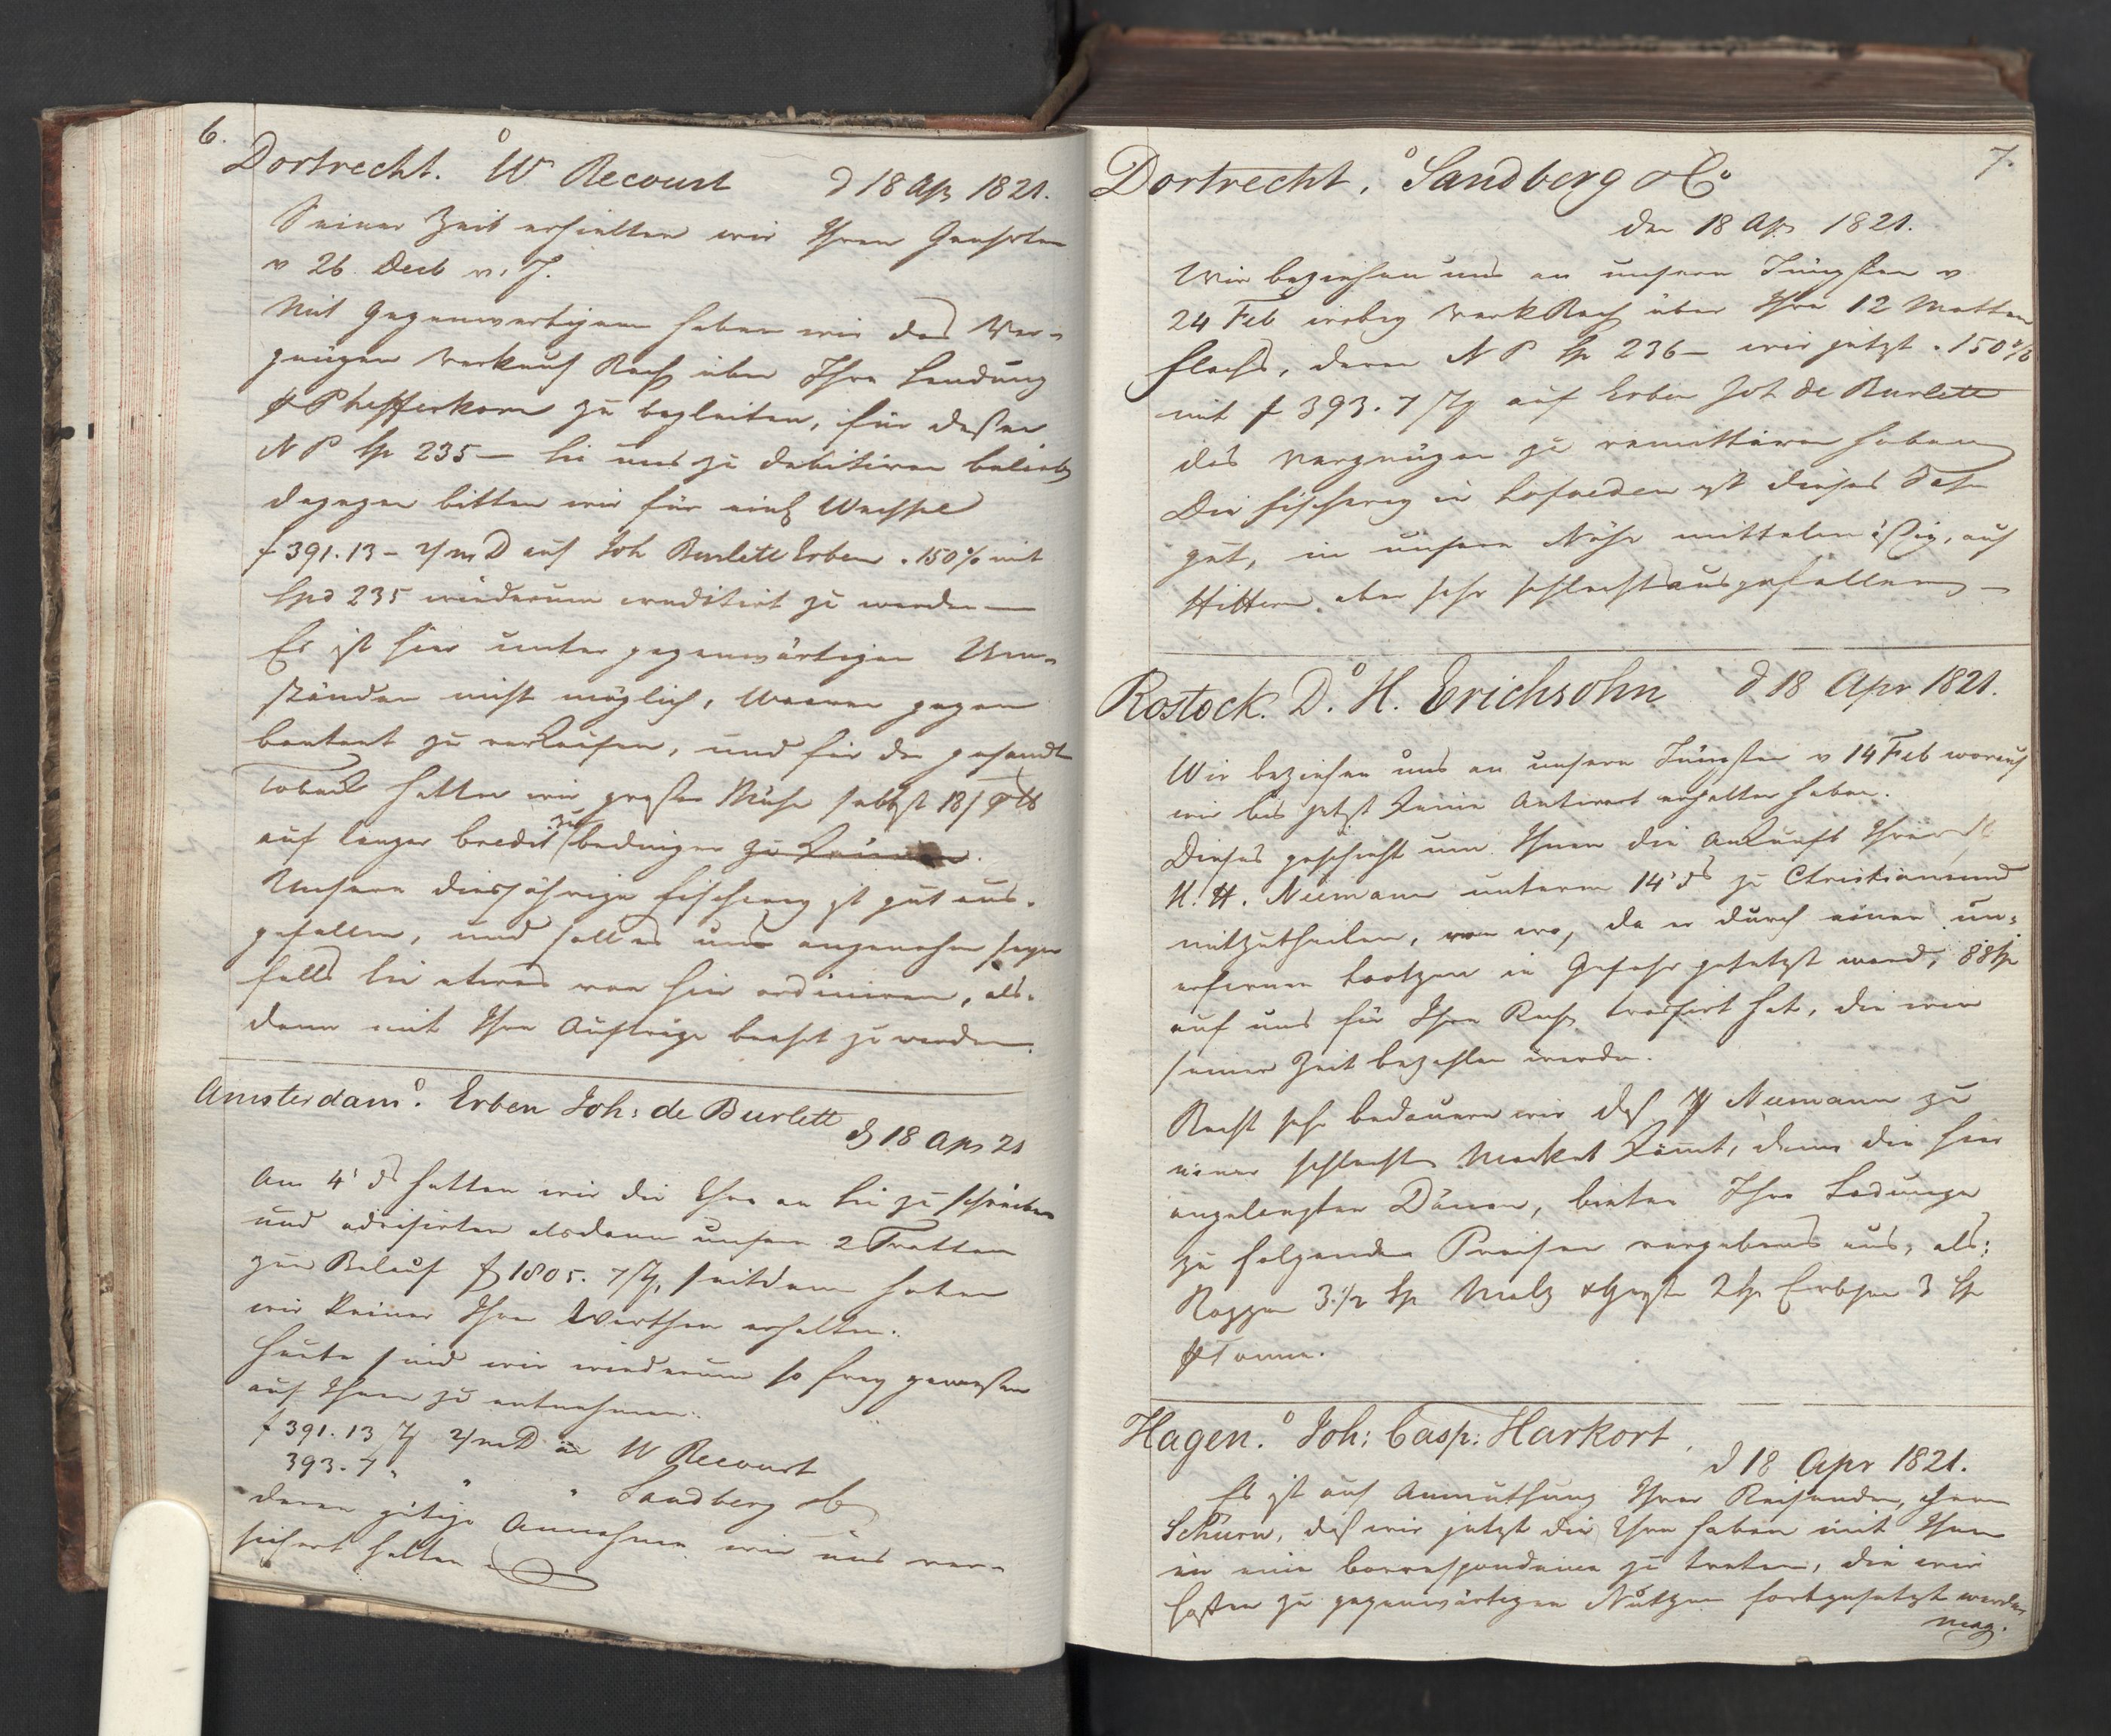 6.
Dortrecht. W Recourt d 18 Apr 1821.
Seiner Zeit erhielten wir Ihren Geehrten
v 26 Decb v. J.
Mit Gegenwertigem haben wir das Ver-
gnügen Verkauf Rech über Ihre Sendung
Pheffferkorn zu begleiten, für deßen
N P Sp 235 – Sie uns zu debitiren belieb
dagegen bitten wir für einl Wechsel
f 391. 13 – 2/m D auf Joh Burlett Erben . 150 % mit
Spd 235 wiederum creditirt zu werden —
Es ist hier unter gegenwärtigen Um-
ständen nicht möglich, Waaren gegen
Contant zu verkaufen, und für den gesandt
Toback hatten wir große Mühe selbst 18/
auf langer Credit zu bedingen zu können.
Unsere diesjährige Fischerey ist gut aus-
gefallen, und soll es uns angenehm seyn
falls Sie etwas von hier ordiniren, als-
dann mit Ihre Aufträge beehrt zu werden.
Amsterdam. Erben Joh: de Burlett
d 18 Apr 21
Am 4' ds hatten wir die Ehre an Sie zu schreiben
und advisirten alsdann unsere 2 Tratten
zum Belauf f 1805. 7 seitdem haben
wir keiner Ihrer Werthen erhalten.
Heute sind wir wiederum so frey gewesen
auf Ihnen zu entnehmen:
f 391. 13 2/m D an W Recourt
393. 7 " " " Sandberg & C
deren gütige Annahme wir uns ver-
sichert halten
7.
Dortrecht. Sandberg & Co
den 18 Apr 1821.
Wir beziehen uns an unsern Jüngsten v
24 Feb wobey Verk Rech über Ihre 12 Matten
Flachs, deren N P Sp 236 – wir jetzt . 150 %
mit f 393. 7 auf Erben Joh de Burlett
das Vergnügen zu remittiren haben
Die Fischerey in Lofoden ist dieses Jahr
gut, in unsere Nähe mittelmäßig, auf
Hittern aber sehr schlecht ausgefallen —
Rostock. D. H. Erichsohn d 18 Apr 1821.
Wir beziehen uns an unsern Jüngsten v 14 Feb worauf
wir bis jetzt keine Antwort erhalten haben.
Dieses geschieht um Ihnen die Ankunft Ihres
H. H. Niemann unterm 14' ds zu Christiansund
mitzutheilen, von wo, da er durch einen un-
erfarnen Lootzen in Gefahr gesetzt ward, 88 Sp
auf uns für Ihre Rech trassirt hat, die wir
seiner Zeit bezahlen werden.
Recht sehr bedauern wir daß H Niemann zu
einer schlechten Markt kömt, denn die hier
angelangten Dänen, bieten Ihre Ladungen
zu folgenden Preisen vergebens aus, als:
Roggen 3 1/2 Sp Malz & Gerste 2 Sp Erbsen 3 Sp
Tonne.
Hagen. Joh: Casp: Harkort
d 18 Apr 1821.
Es ist auf Anmuthung Ihres Reisenden, Herrn
Schürn, daß wir jetzt die Ehre haben mit Ihnen
in eine Correspondence zu treten, die wir
hoffen zu gegenwärtigen Nutzen fortgesetzt werden
mag.